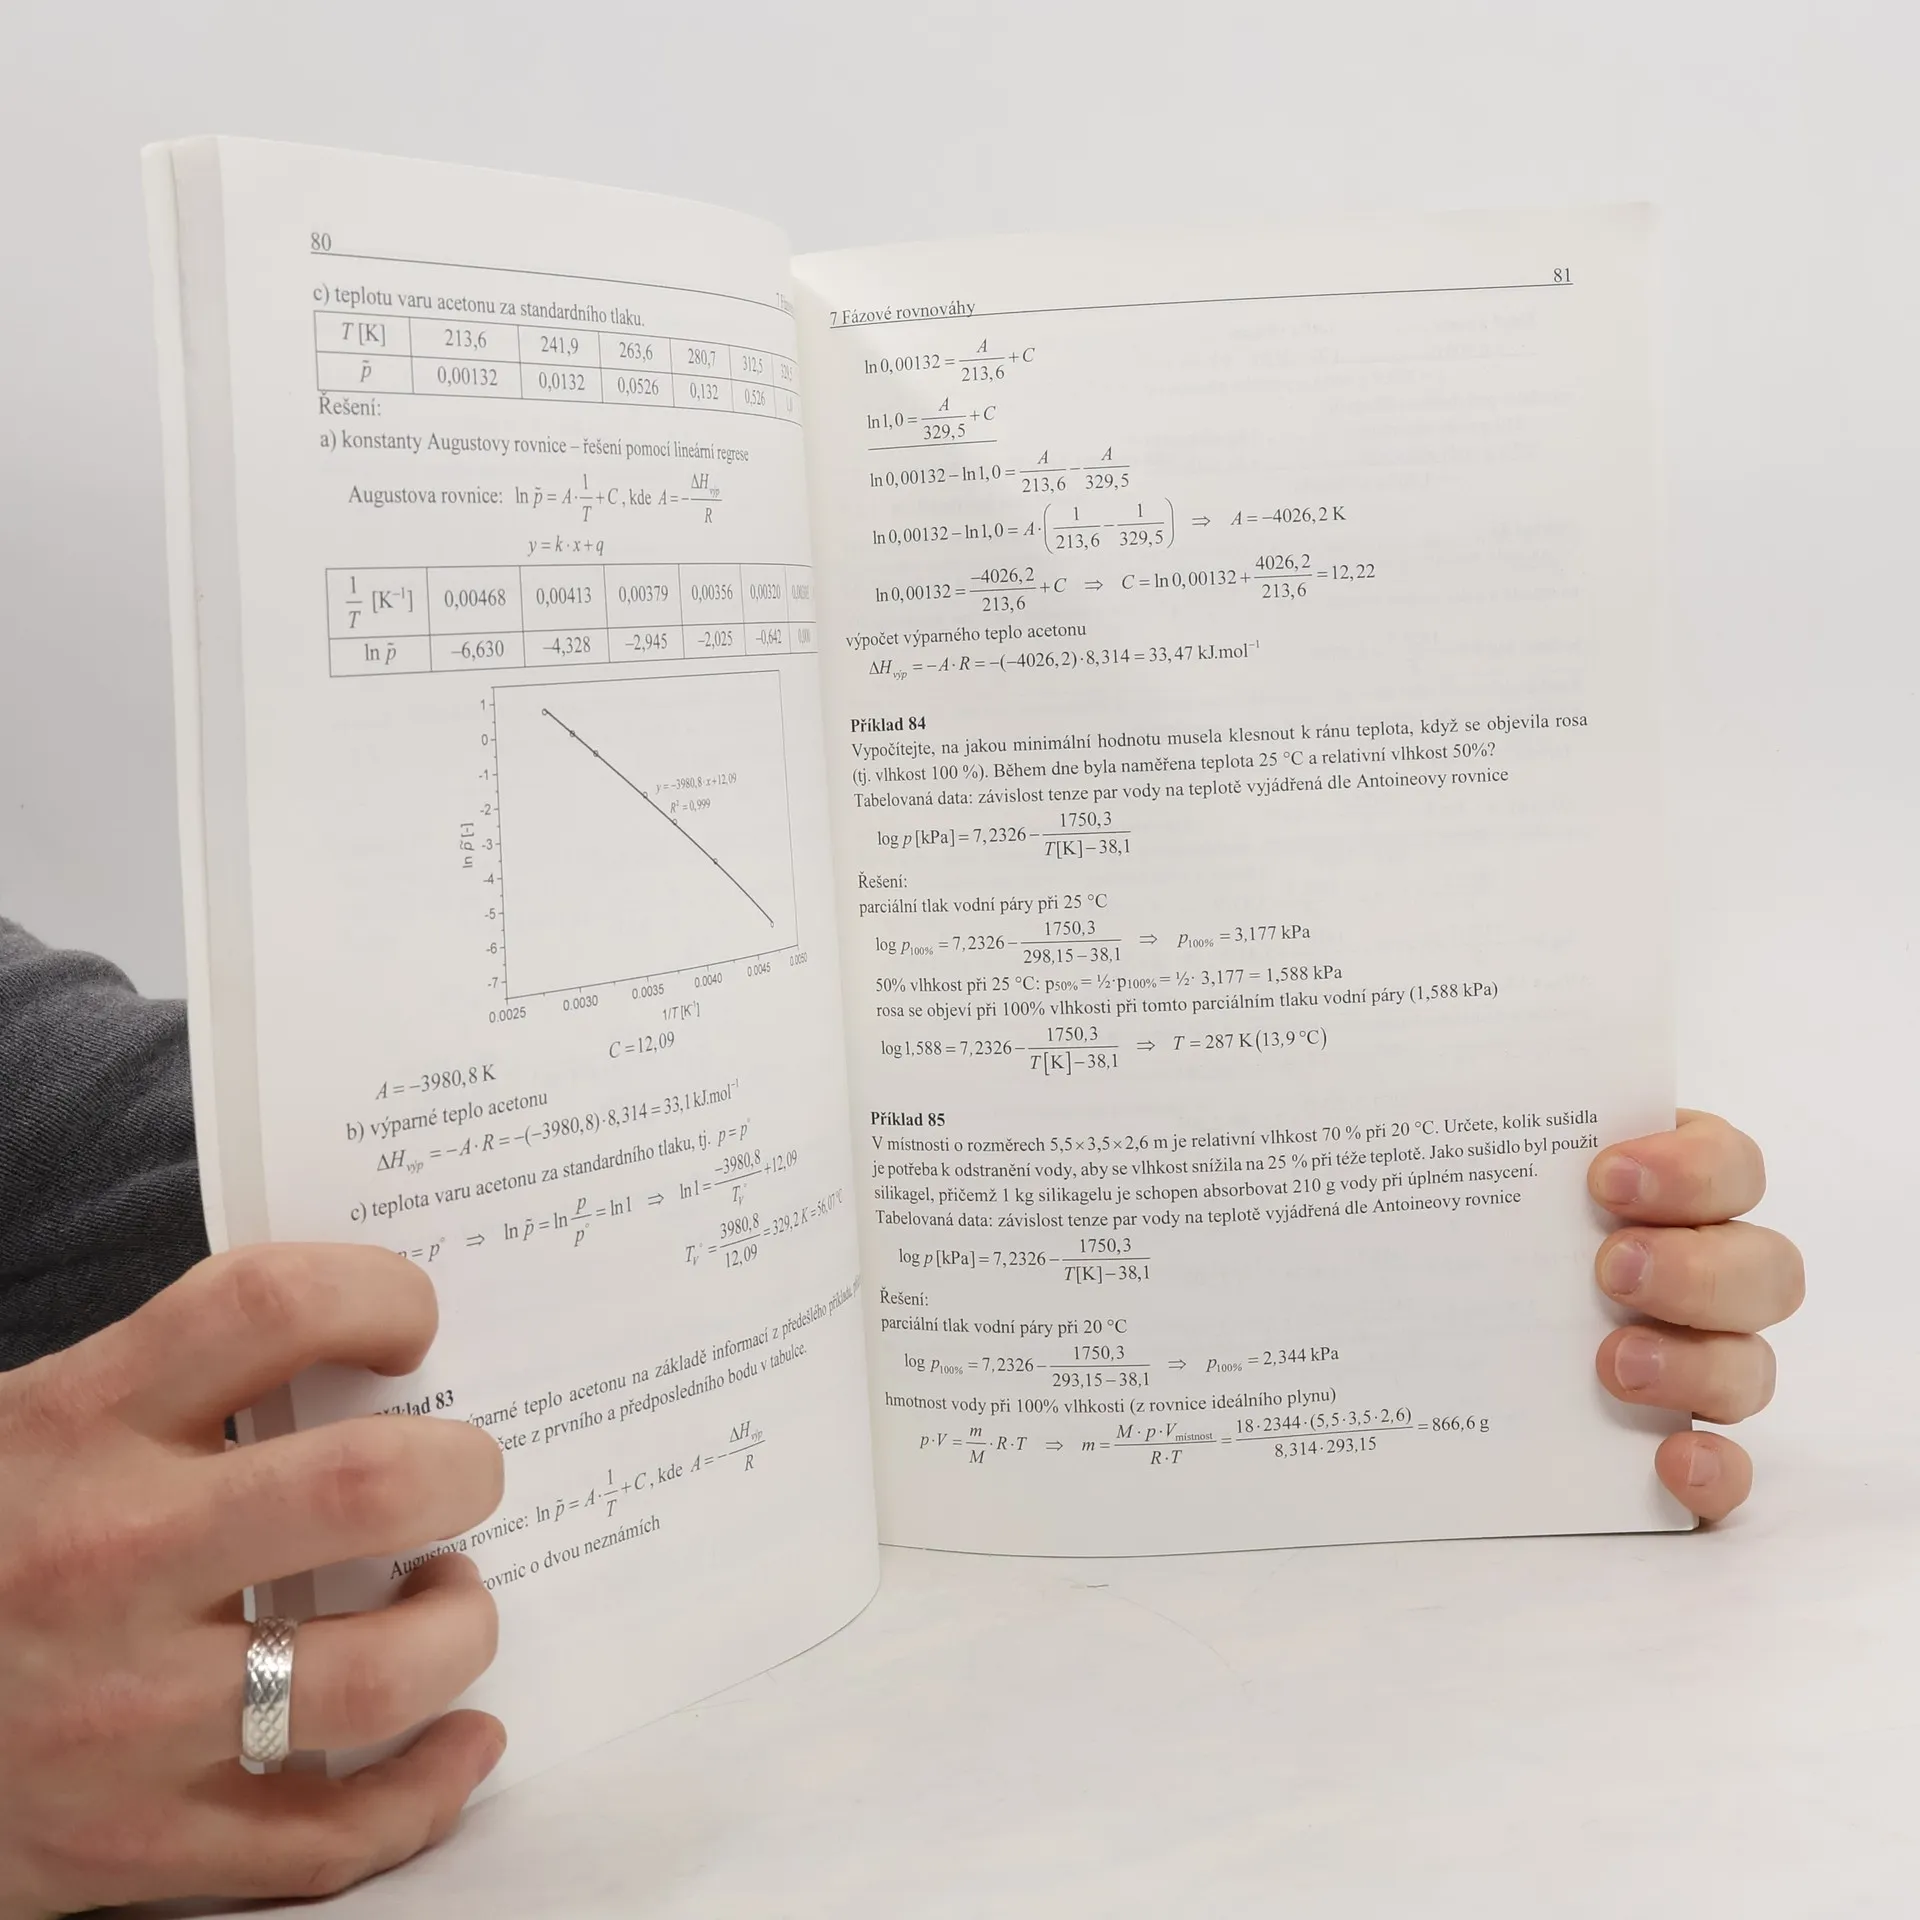 80
c) teplotu varu acetonu za standardního tlaku.
T [K] 213,6 241,9 263,6 280,7 312,5 329,5
p̃ 0,00132 0,0132 0,0526 0,132 0,526
Řešení:
a) konstanty Augustovy rovnice – řešení pomocí lineární regrese
Augustova rovnice: ln p̃ = A·1/T + C, kde A = −ΔH_výp/R
y = k·x + q
1/T [K⁻¹] 0,00468 0,00413 0,00379 0,00356 0,00320
ln p̃ –6,630 –4,328 –2,945 –2,025 –0,642
1
0
-1
-2
-3
-4
-5
-6
-7
ln p̃ [-]
y = −3980,8·x+12,09
R² = 0,999
0.0025 0.0030 0.0035 0.0040 0.0045 0.0050
1/T [K⁻¹]
A = −3980,8 K C = 12,09
b) výparné teplo acetonu
ΔH_výp = −A·R = −(−3980,8)·8,314 = 33,1 kJ.mol⁻¹
c) teplota varu acetonu za standardního tlaku, tj. p = p°
p = p° ⇒ ln p̃ = ln p/p° = ln 1 ⇒ ln 1 = −3980,8/T_v° + 12,09
T_v° = 3980,8/12,09 = 329,2 K = 56,07 °C
83
teplo acetonu na základě informací z předešlého příkladu
z prvního a předposledního bodu v tabulce.
Augustova rovnice: ln p̃ = A·1/T + C, kde A = −ΔH_výp/R
rovnic o dvou neznámích
7 Fázové rovnováhy 81
ln 0,00132 = A/213,6 + C
ln 1,0 = A/329,5 + C
ln 0,00132 − ln 1,0 = A/213,6 − A/329,5
ln 0,00132 − ln 1,0 = A·(1/213,6 − 1/329,5) ⇒ A = −4026,2 K
ln 0,00132 = −4026,2/213,6 + C ⇒ C = ln 0,00132 + 4026,2/213,6 = 12,22
výpočet výparného teplo acetonu
ΔH_výp = −A·R = −(−4026,2)·8,314 = 33,47 kJ.mol⁻¹
Příklad 84
Vypočítejte, na jakou minimální hodnotu musela klesnout k ránu teplota, když se objevila rosa
(tj. vlhkost 100 %). Během dne byla naměřena teplota 25 °C a relativní vlhkost 50%?
Tabelovaná data: závislost tenze par vody na teplotě vyjádřená dle Antoineovy rovnice
log p [kPa] = 7,2326 − 1750,3/(T[K]−38,1)
Řešení:
parciální tlak vodní páry při 25 °C
log p₁₀₀% = 7,2326 − 1750,3/(298,15−38,1) ⇒ p₁₀₀% = 3,177 kPa
50% vlhkost při 25 °C: p₅₀% = ½·p₁₀₀% = ½· 3,177 = 1,588 kPa
rosa se objeví při 100% vlhkosti při tomto parciálním tlaku vodní páry (1,588 kPa)
log 1,588 = 7,2326 − 1750,3/(T[K]−38,1) ⇒ T = 287 K (13,9 °C)
Příklad 85
V místnosti o rozměrech 5,5×3,5×2,6 m je relativní vlhkost 70 % při 20 °C. Určete, kolik sušidla
je potřeba k odstranění vody, aby se vlhkost snížila na 25 % při téže teplotě. Jako sušidlo byl použit
silikagel, přičemž 1 kg silikagelu je schopen absorbovat 210 g vody při úplném nasycení.
Tabelovaná data: závislost tenze par vody na teplotě vyjádřená dle Antoineovy rovnice
log p [kPa] = 7,2326 − 1750,3/(T[K]−38,1)
Řešení:
parciální tlak vodní páry při 20 °C
log p₁₀₀% = 7,2326 − 1750,3/(293,15−38,1) ⇒ p₁₀₀% = 2,344 kPa
hmotnost vody při 100% vlhkosti (z rovnice ideálního plynu)
p·V = m/M·R·T ⇒ m = M·p·V_místnost/(R·T) = 18·2344·(5,5·3,5·2,6)/(8,314·293,15) = 866,6 g